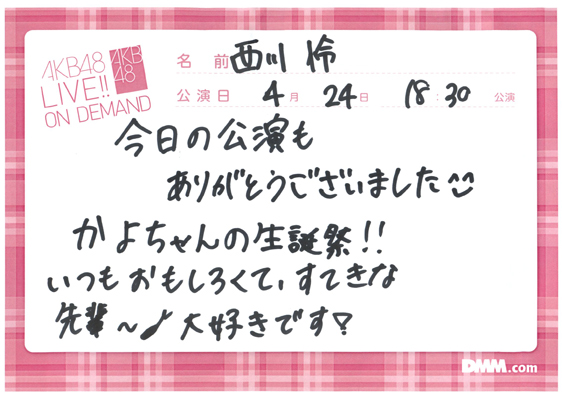 AKB48
LIVE!!
ON DEMAND
AKB
48
名前 西川怜
公演日 4月 24日 18:30 公演
今日の公演も
ありがとうございました
かよちゃんの生誕祭!!
いつもおもしろくて、すてきな
先輩〜♪大好きです♡
DMM.com